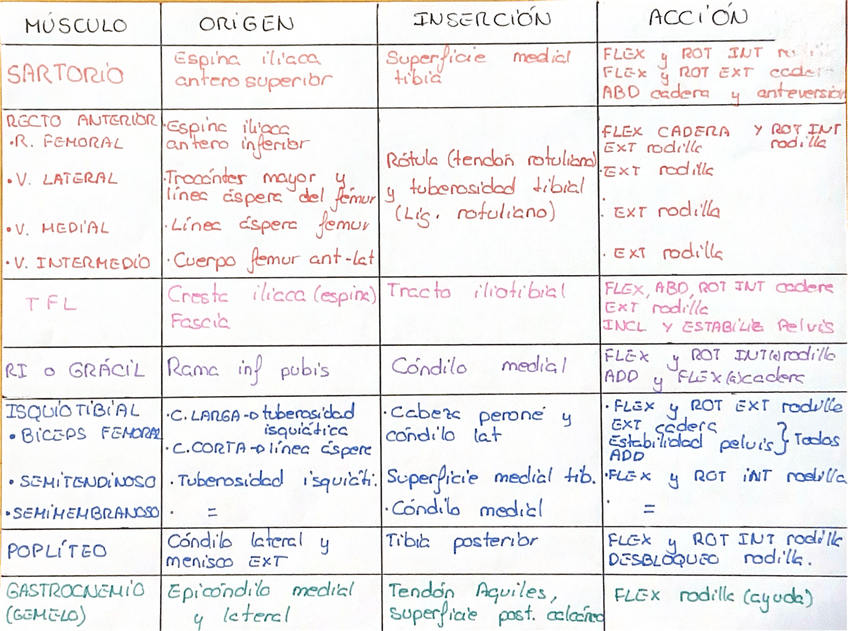 MÚSCULO ORIGEN INSERCIÓN ACCIÓN
SARTORIO
Espina iliaca
antero superior
Superficie medial
tibia
FLEX y ROT INT
FLEX y ROT EXT cadera
ABD cadera y anteversión
RECTO ANTERIOR
·R. FEMORAL
·Espina iliaca
antero inferior
Rótula (tendón rotuliano)
y tuberosidad tibial
(Lig. rotuliano)
FLEX CADERA Y ROT INT
EXT rodilla rodilla
·V. LATERAL
·Trocánter mayor y
línea áspera del fémur
·EXT rodilla
·V. MEDIAL
·Línea áspera femur
· EXT rodilla
·V. INTERMEDIO
·Cuerpo femur ant-lat
· EXT rodilla
TFL
Cresta iliaca (espina)
Fascia
Tracto iliotibial
FLEX, ABD, ROT INT cadera
EXT rodilla
INCL Y ESTABILIZ Pelvis
RI o GRÁCIL
Rama inf pubis
Cóndilo medial
FLEX y ROT INT(a) rodilla
ADD y FLEX(a) cadera
ISQUIOTIBIAL
• BÍCEPS FEMORAL
·C. LARGA→tuberosidad
isquiática
·C. CORTA→línea áspera
·Cabeza peroné y
cóndilo lat
·FLEX y ROT EXT rodilla
EXT cadera
Estabilidad pelvis } Todos
ADD
• SEMITENDINOSO
·Tuberosidad isquiáti.
Superficie medial tib.
·FLEX y ROT INT rodilla
•SEMIMEMBRANOSO
· =
·Cóndilo medial
· =
POPLÍTEO
Cóndilo lateral y
menisco EXT
Tibia posterior
FLEX y ROT INT rodilla
DESBLOQUEO rodilla.
GASTROCNEMIO
(GEMELO)
Epicóndilo medial
y lateral
Tendón Aquiles,
superficie post. calcáneo
FLEX rodilla (ayuda)